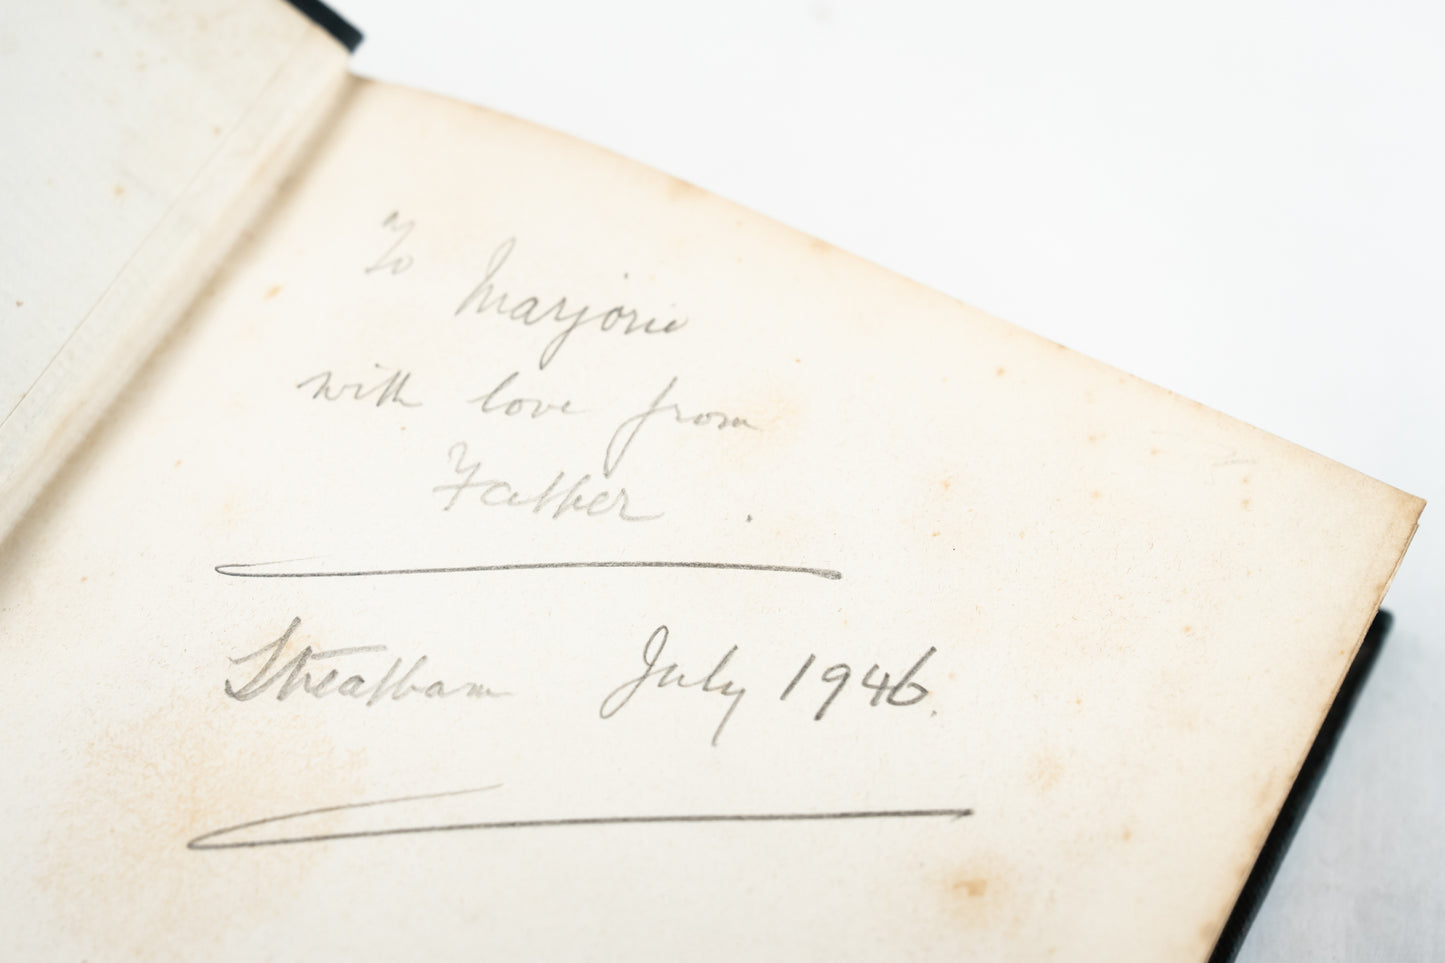 To Marjorie
with love from
Father.
Streatham July 1946.